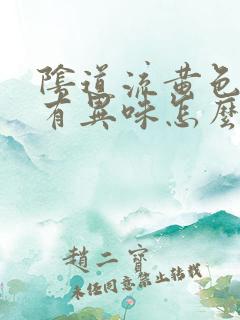 陰道流黃色
有異味怎麼
趙二寶
未任同意禁止轉載